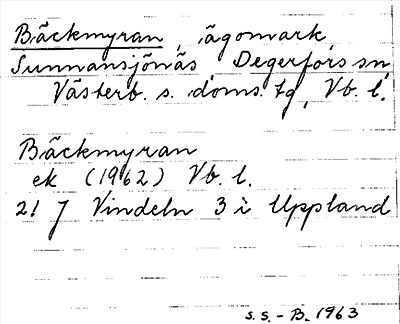 Bäckmyran, ägomark
Sunnansjönäs, Degerfors sn,
Västerb. s. doms. tg, Vb. l.
Bäckmyran
ek (1962) Vb. l.
21 J Vindeln 3 i Uppland
S.S. - B. 1963